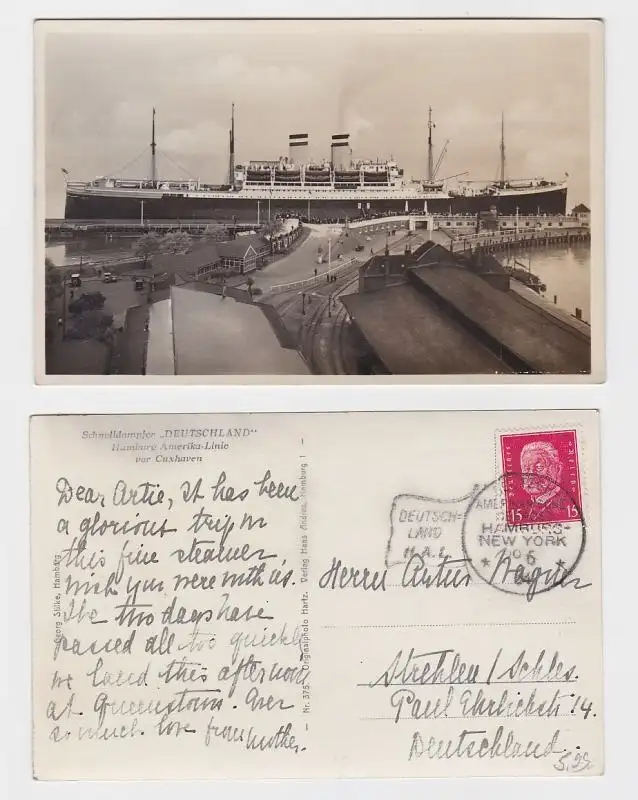 Schnelldampfer „DEUTSCHLAND“
Hamburg Amerika-Linie
vor Cuxhaven
Dear Artie, it has been
a glorious trip on
this fine steamer,
wish you were with us.
The two days have
passed all too quickly
we land this afternoon
at Queenstown. Ever
so much love from Mother.
Georg Stilke, Hamburg
Nr. 375 Originalphoto Hartz. Verlag Hans Andres, Hamburg 1
DEUTSCH-
LAND
H.A.L.
15 15
HAMBURG-
NEW YORK
Herrn Artur Wagner
Strehlen/Schles.
Paul Ehrlichstr. 14.
Deutschland.